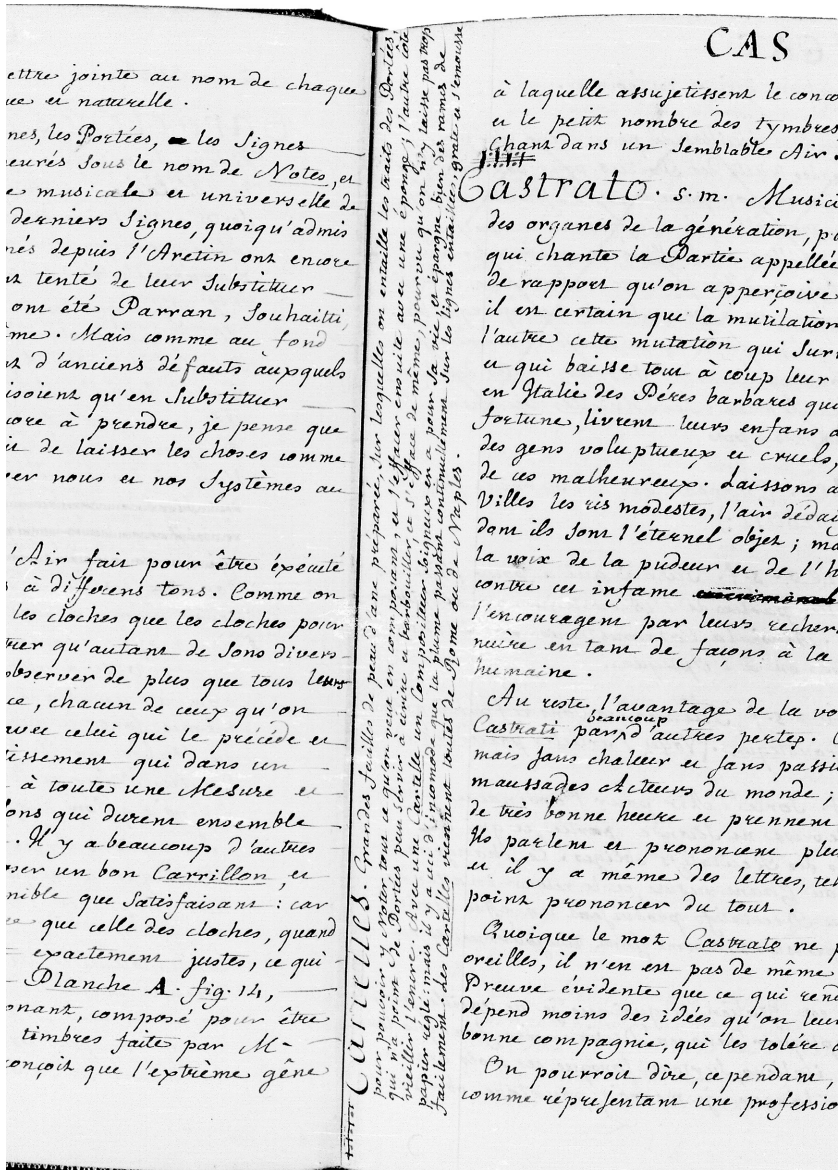 ettre jointe au nom de chaque
ue et naturelle.
nes, les Portées, les Signes
gurés sous le nom de Notes, et
e musicale et universelle de
derniers Signes, quoiqu'admis
nés depuis l'Aretin ont encore
nt tenté de leur substituer
ont été Parran, Souhaitti,
ême. Mais comme au fond
nt d'anciens défauts auxquels
isoient qu'en substituer
core à prendre, je pense que
de laisser les choses comme
ver nous et nos Systèmes au
'Air fait pour être éxécuté
s à differens tons. Comme on
les cloches que les cloches pour
trer qu'autant de Sons divers
observer de plus que tous leurs
ce, chacun de ceux qu'on
avec celui qui le précéde et
tissement qui dans un
à toute une Mesure et
Sons qui durent ensemble
. Il y a beaucoup d'autres
oser un bon Carrillon, et
nible que satisfaisant : car
que celle des cloches, quand
exactement justes, ce qui
Planche A. fig. 14,
onant, composé pour être
timbres faite par M.
conçoit que l'extrème gêne
Cartelles. Grandes feuilles de peau d'ane préparée, sur lesquelles on entaille les traits des Portées,
pour pouvoir y Noter tout ce qu'on veut en composant, et l'effacer ensuite avec une éponge; l'autre côté
qui n'a point de Portées peut servir à écrire et barbouiller, et s'efface de même, pourvu qu'on n'y laisse pas trop
vieillir l'encre. Avec une Cartelle un Compositeur soigneux en a pour sa vie, et épargne bien des rames de
papier réglé: mais il y a ceci d'incomode que la plume passant continuellement sur les lignes entaillées, grate et s'émousse
facilement. Les Cartelles viennent toutes de Rome ou de Naples.
CAS
à laquelle assujetissent le conco
et le petit nombre des tymbres
Chant dans un semblable Air
Castrato. s.m. Musici
des organes de la génération, po
qui chante la Partie appellée
de rapport qu'on apperçoive
il est certain que la mutilation
l'autre cette mutation qui sur
et qui baisse tout à coup leur
en Italie des Péres barbares qui
fortune, livrent leurs enfans a
des gens voluptueux et cruels,
de ces malheureux. Laissons a
Villes les ris modestes, l'air dédai
dont ils sont l'éternel objet; ma
la voix de la pudeur et de l'h
contre cet infame
l'encouragent par leurs recher
nuire en tant de façons à la
humaine.
Au reste, l'avantage de la vo
Castrati par beaucoup d'autres pertes.
mais sans chaleur et sans passi
maussades Acteurs du monde;
de très bonne heure et prennent
Ils parlent et prononcent plu
et il y a même des lettres, tel
point prononcer du tout.
Quoique le mot Castrato ne p
oreilles, il n'en est pas de même
Preuve évidente que ce qui rend
dépend moins des idées qu'on leur
bonne compagnie, qui les tolère
On pourroit dire, cependant,
comme répresentant une professio